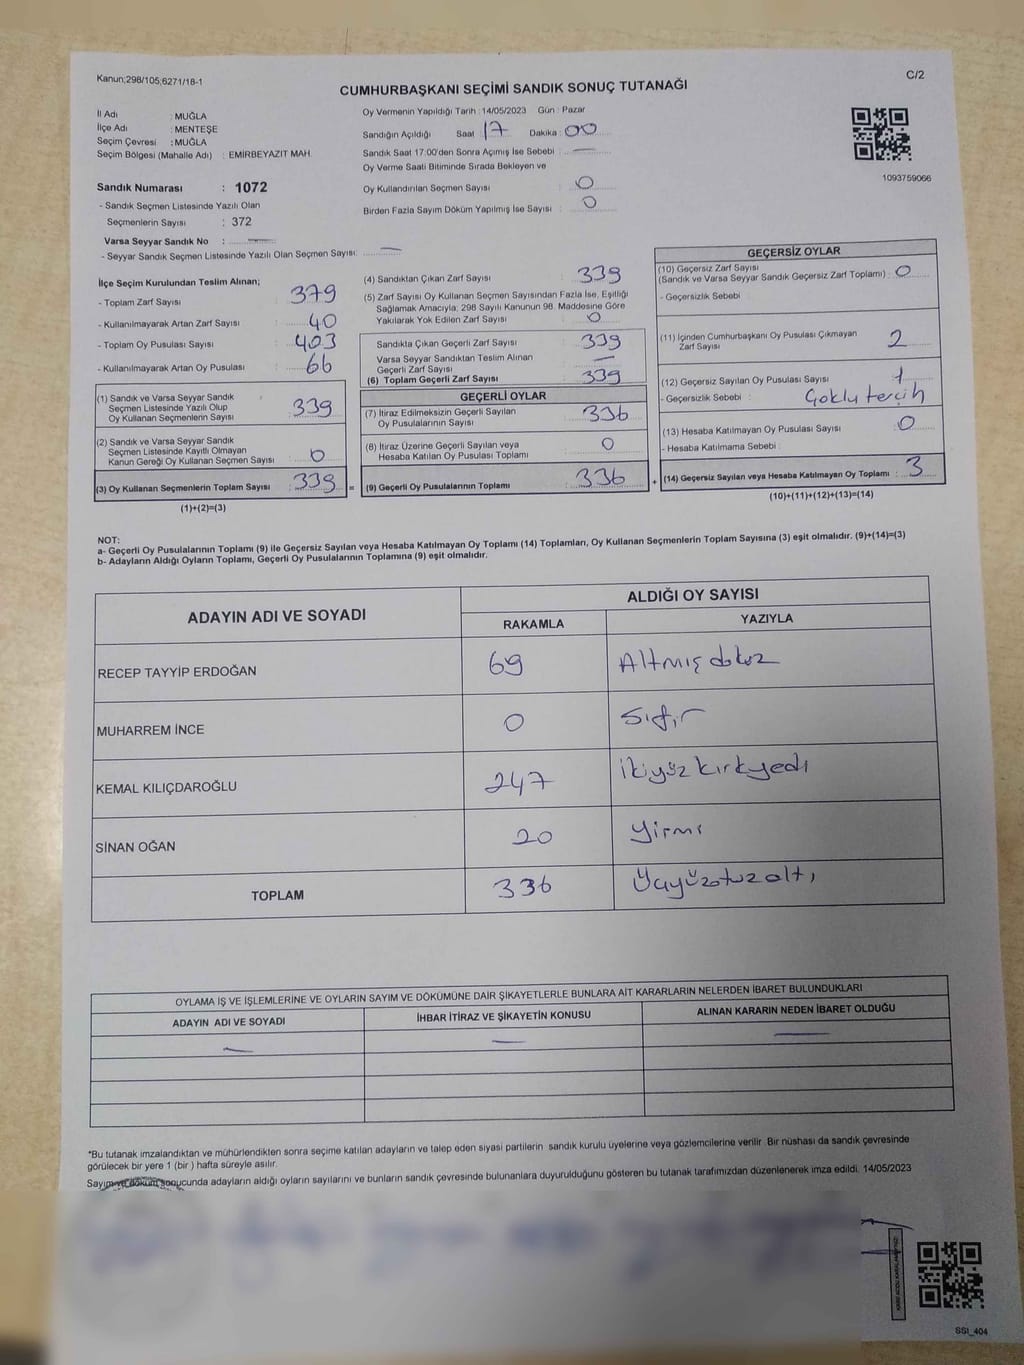 Kanun;298/105;6271/18-1
C/2
CUMHURBAŞKANI SEÇİMİ SANDIK SONUÇ TUTANAĞI
İl Adı : MUĞLA
İlçe Adı : MENTEŞE
Seçim Çevresi : MUĞLA
Seçim Bölgesi (Mahalle Adı) : EMİRBEYAZIT MAH.
Sandık Numarası : 1072
- Sandık Seçmen Listesinde Yazılı Olan
Seçmenlerin Sayısı : 372
Varsa Seyyar Sandık No :
- Seyyar Sandık Seçmen Listesinde Yazılı Olan Seçmen Sayısı:
Oy Vermenin Yapıldığı Tarih : 14/05/2023 Gün : Pazar
Sandığın Açıldığı Saat 17 Dakika : 00
Sandık Saat 17:00'den Sonra Açımış İse Sebebi : —
Oy Verme Saati Bitiminde Sırada Bekleyen ve
Oy Kullandırılan Seçmen Sayısı : 0
Birden Fazla Sayım Döküm Yapılmış İse Sayısı : 0
1093759066
İlçe Seçim Kurulundan Teslim Alınan;
- Toplam Zarf Sayısı : 379
- Kullanılmayarak Artan Zarf Sayısı : 40
- Toplam Oy Pusulası Sayısı : 403
- Kullanılmayarak Artan Oy Pusulası : 66
(1) Sandık ve Varsa Seyyar Sandık
Seçmen Listesinde Yazılı Olup
Oy Kullanan Seçmenlerin Sayısı : 339
(2) Sandık ve Varsa Seyyar Sandık
Seçmen Listesinde Kayıtlı Olmayan
Kanun Gereği Oy Kullanan Seçmen Sayısı : 0
(3) Oy Kullanan Seçmenlerin Toplam Sayısı : 339
(1)+(2)=(3)
(4) Sandıktan Çıkan Zarf Sayısı : 339
(5) Zarf Sayısı Oy Kullanan Seçmen Sayısından Fazla İse, Eşitliği
Sağlamak Amacıyla; 298 Sayılı Kanunun 98. Maddesine Göre
Yakılarak Yok Edilen Zarf Sayısı : 0
Sandıkta Çıkan Geçerli Zarf Sayısı : 339
Varsa Seyyar Sandıktan Teslim Alınan
Geçerli Zarf Sayısı : —
(6) Toplam Geçerli Zarf Sayısı : 339
GEÇERLİ OYLAR
(7) İtiraz Edilmeksizin Geçerli Sayılan
Oy Pusulalarının Sayısı : 336
(8) İtiraz Üzerine Geçerli Sayılan veya
Hesaba Katılan Oy Pusulası Toplamı : 0
= (9) Geçerli Oy Pusulalarının Toplamı : 336
GEÇERSİZ OYLAR
(10) Geçersiz Zarf Sayısı
(Sandık ve Varsa Seyyar Sandık Geçersiz Zarf Toplamı) : 0
- Geçersizlik Sebebi :
(11) İçinden Cumhurbaşkanı Oy Pusulası Çıkmayan
Zarf Sayısı : 2
(12) Geçersiz Sayılan Oy Pusulası Sayısı : 1
- Geçersizlik Sebebi : Çoklu tercih
(13) Hesaba Katılmayan Oy Pusulası Sayısı : 0
- Hesaba Katılmama Sebebi :
+ (14) Geçersiz Sayılan veya Hesaba Katılmayan Oy Toplamı : 3
(10)+(11)+(12)+(13)=(14)
NOT:
a- Geçerli Oy Pusulalarının Toplamı (9) ile Geçersiz Sayılan veya Hesaba Katılmayan Oy Toplamı (14) Toplamları, Oy Kullanan Seçmenlerin Toplam Sayısına (3) eşit olmalıdır. (9)+(14)=(3)
b- Adayların Aldığı Oyların Toplamı, Geçerli Oy Pusulalarının Toplamına (9) eşit olmalıdır.
ADAYIN ADI VE SOYADI
ALDIĞI OY SAYISI
RAKAMLA YAZIYLA
RECEP TAYYİP ERDOĞAN 69 Altmış dokuz
MUHARREM İNCE 0 Sıfır
KEMAL KILIÇDAROĞLU 247 İkiyüz kırkyedi
SİNAN OĞAN 20 Yirmi
TOPLAM 336 Üçyüzotuzaltı
OYLAMA İŞ VE İŞLEMLERİNE VE OYLARIN SAYIM VE DÖKÜMÜNE DAİR ŞİKAYETLERLE BUNLARA AİT KARARLARIN NELERDEN İBARET BULUNDUKLARI
ADAYIN ADI VE SOYADI İHBAR İTİRAZ VE ŞİKAYETİN KONUSU ALINAN KARARIN NEDEN İBARET OLDUĞU
— — —
*Bu tutanak imzalandıktan ve mühürlendikten sonra seçime katılan adayların ve talep eden siyasi partilerin sandık kurulu üyelerine veya gözlemcilerine verilir. Bir nüshası da sandık çevresinde
görülecek bir yere 1 (bir ) hafta süreyle asılır.
Sayım ve döküm sonucunda adayların aldığı oyların sayılarını ve bunların sandık çevresinde bulunanlara duyurulduğunu gösteren bu tutanak tarafımızdan düzenlenerek imza edildi. 14/05/2023
SSI_404